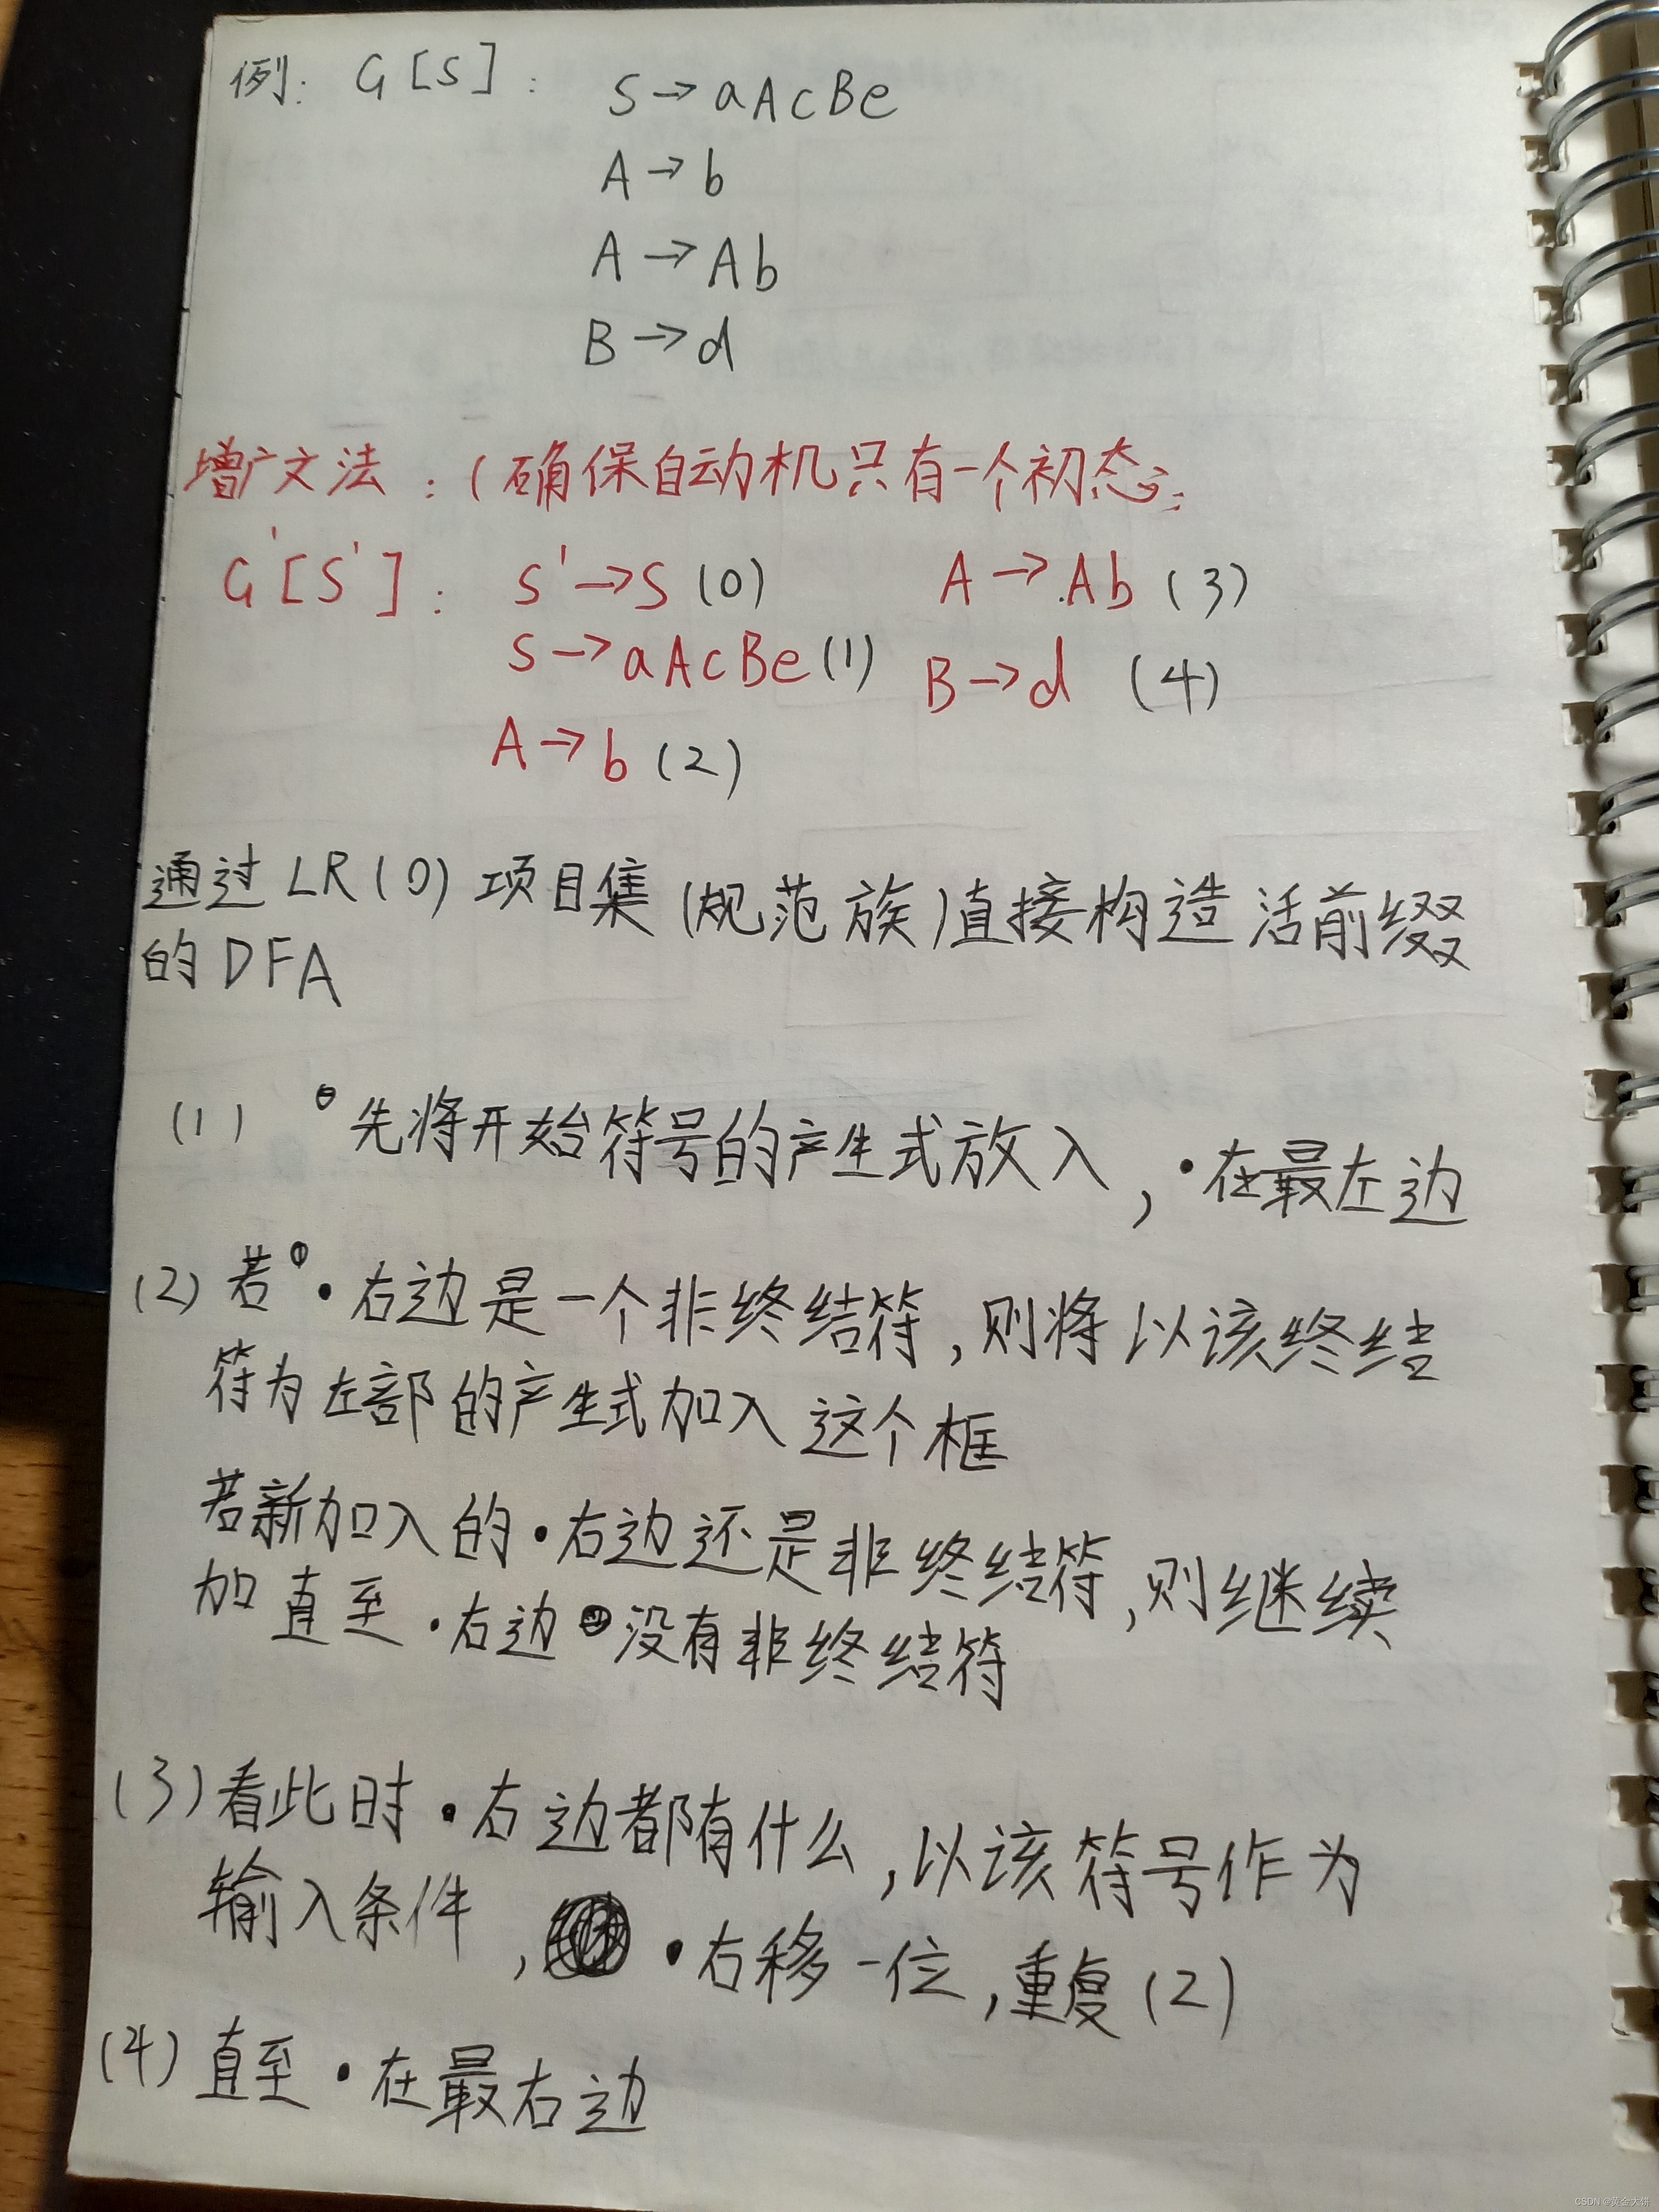 例: G[S]: S→aAcBe
A→b
A→Ab
B→d
增广文法:(确保自动机只有一个初态;
G'[S']: S'→S (0) A→.Ab (3)
S→aAcBe(1) B→d (4)
A→b (2)
通过LR(0)项目集(规范族)直接构造活前缀
的DFA
(1) 先将开始符号的产生式放入,·在最左边
(2)若·右边是一个非终结符,则将以该终结
符为左部的产生式加入这个框
若新加入的·右边还是非终结符,则继续
加直至·右边没有非终结符
(3)看此时·右边都有什么,以该符号作为
输入条件,·右移一位,重复(2)
(4)直至·在最右边
CSDN @黄金大饼